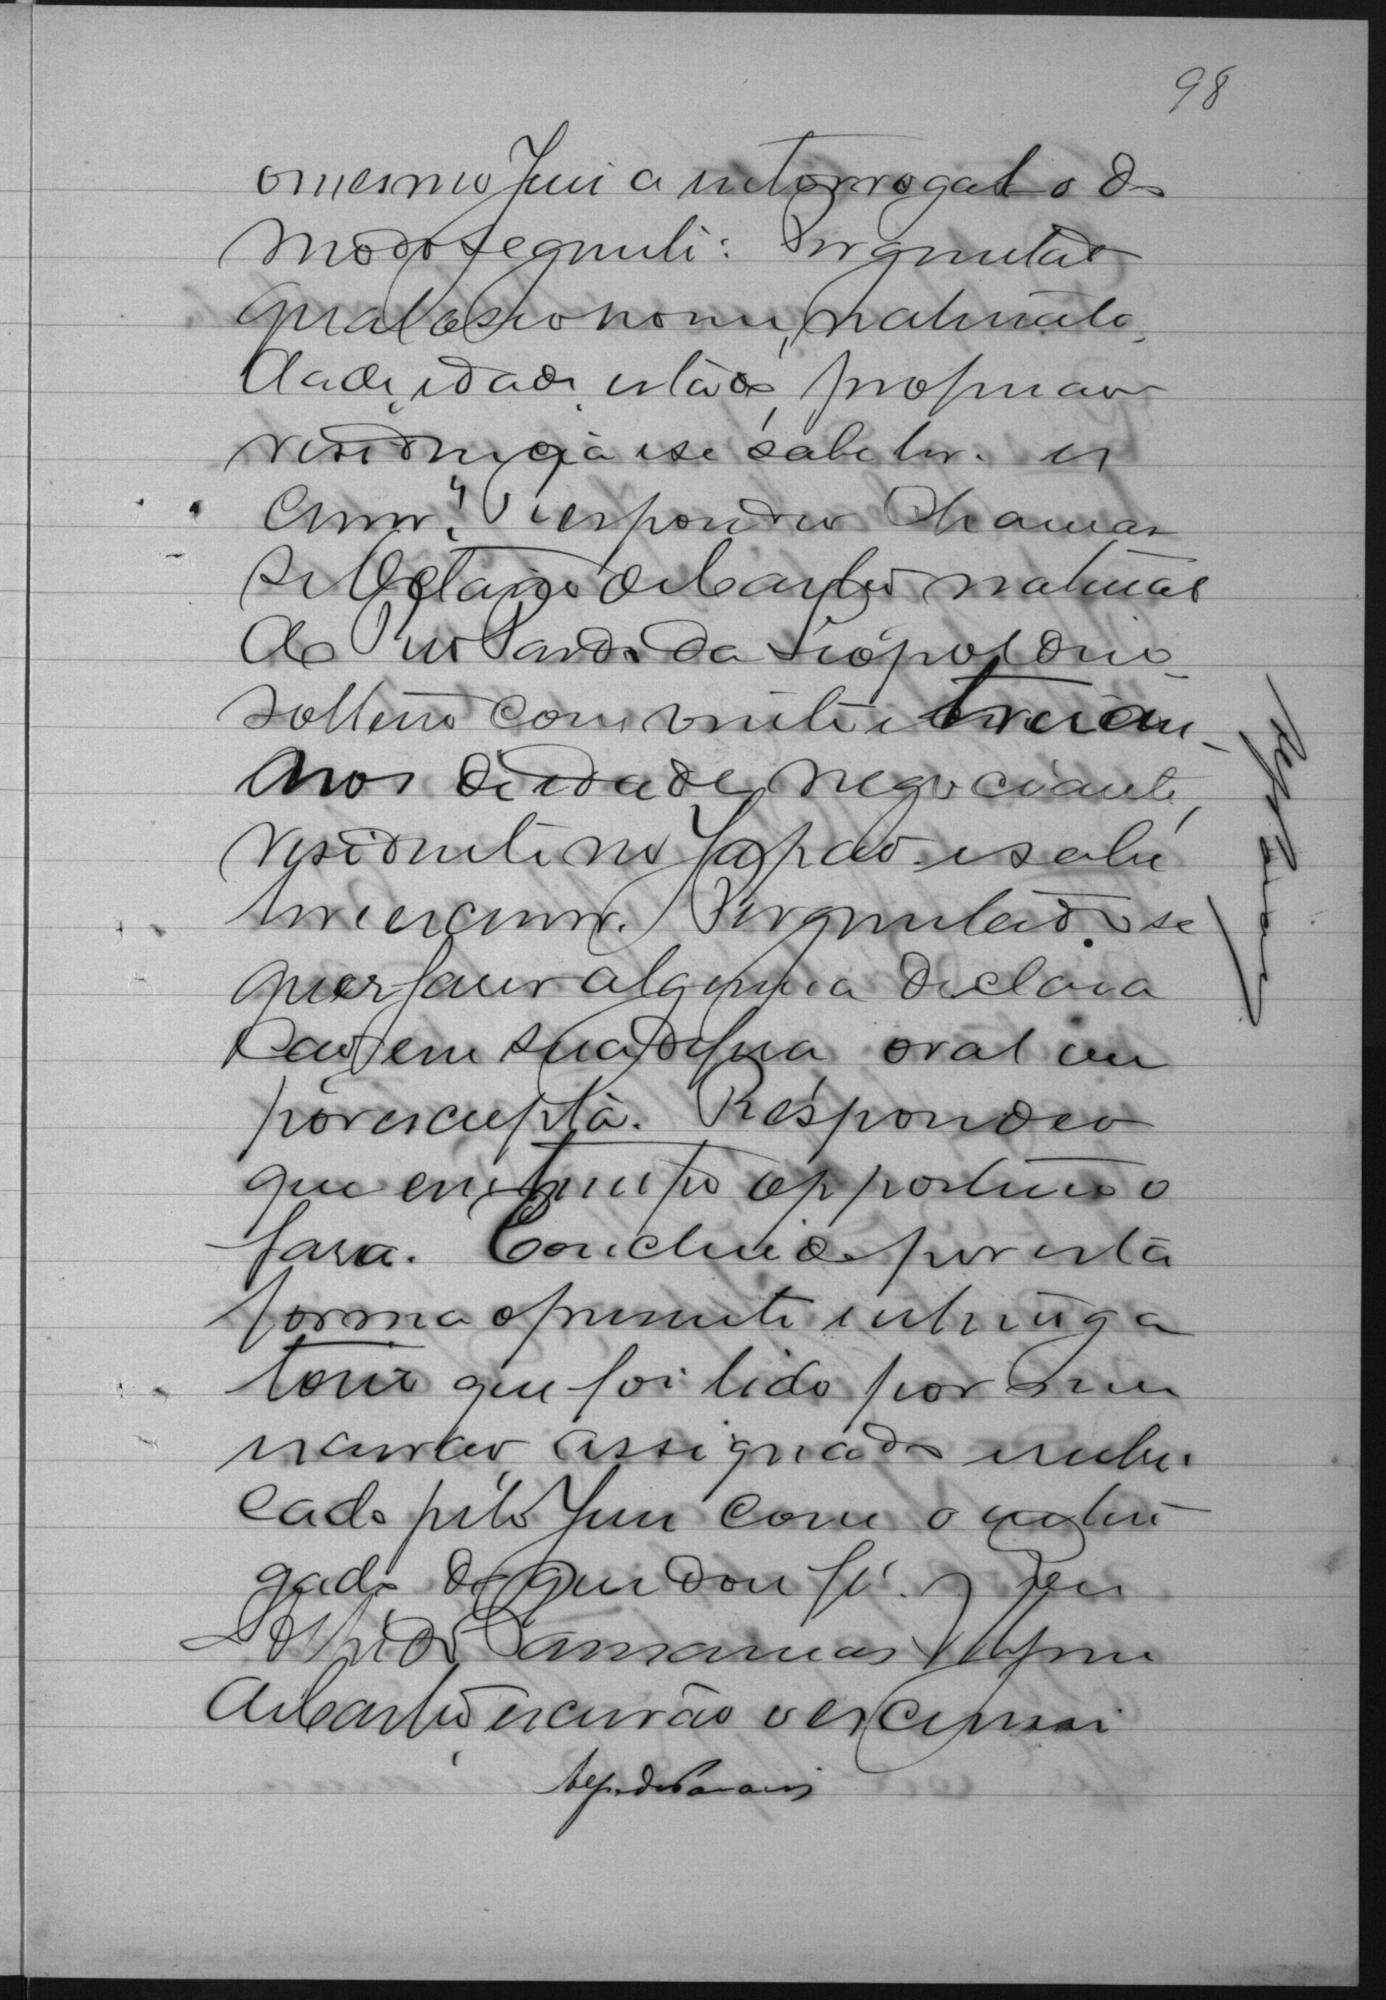 98
o mesmo Juiz a interrogal-o do
modo seguinte: Perguntado
qual o seo nome, naturali-
dade, idade, estado, profissão
residencia e se sabe ler e es
crever? Respondeo chamar
se Octavio de Castro natural
do Rio Pardo da Leopoldina
solteiro com vinte e tres an-
nos de idade, negociante,
residente no e sabe
ler e escrever. Perguntado se
quer fazer alguma declara
ção em sua defesa oral ou
por escripta. Respondeo
que em tempo opportuno o
fara. Concluido por esta
forma o presente interroga
torio que foi lido por mim
escrivão, assignado e rubri
cado pelo Juiz com o interro
gado do que dou fé. Eu
de Castro escrivão o escrevi